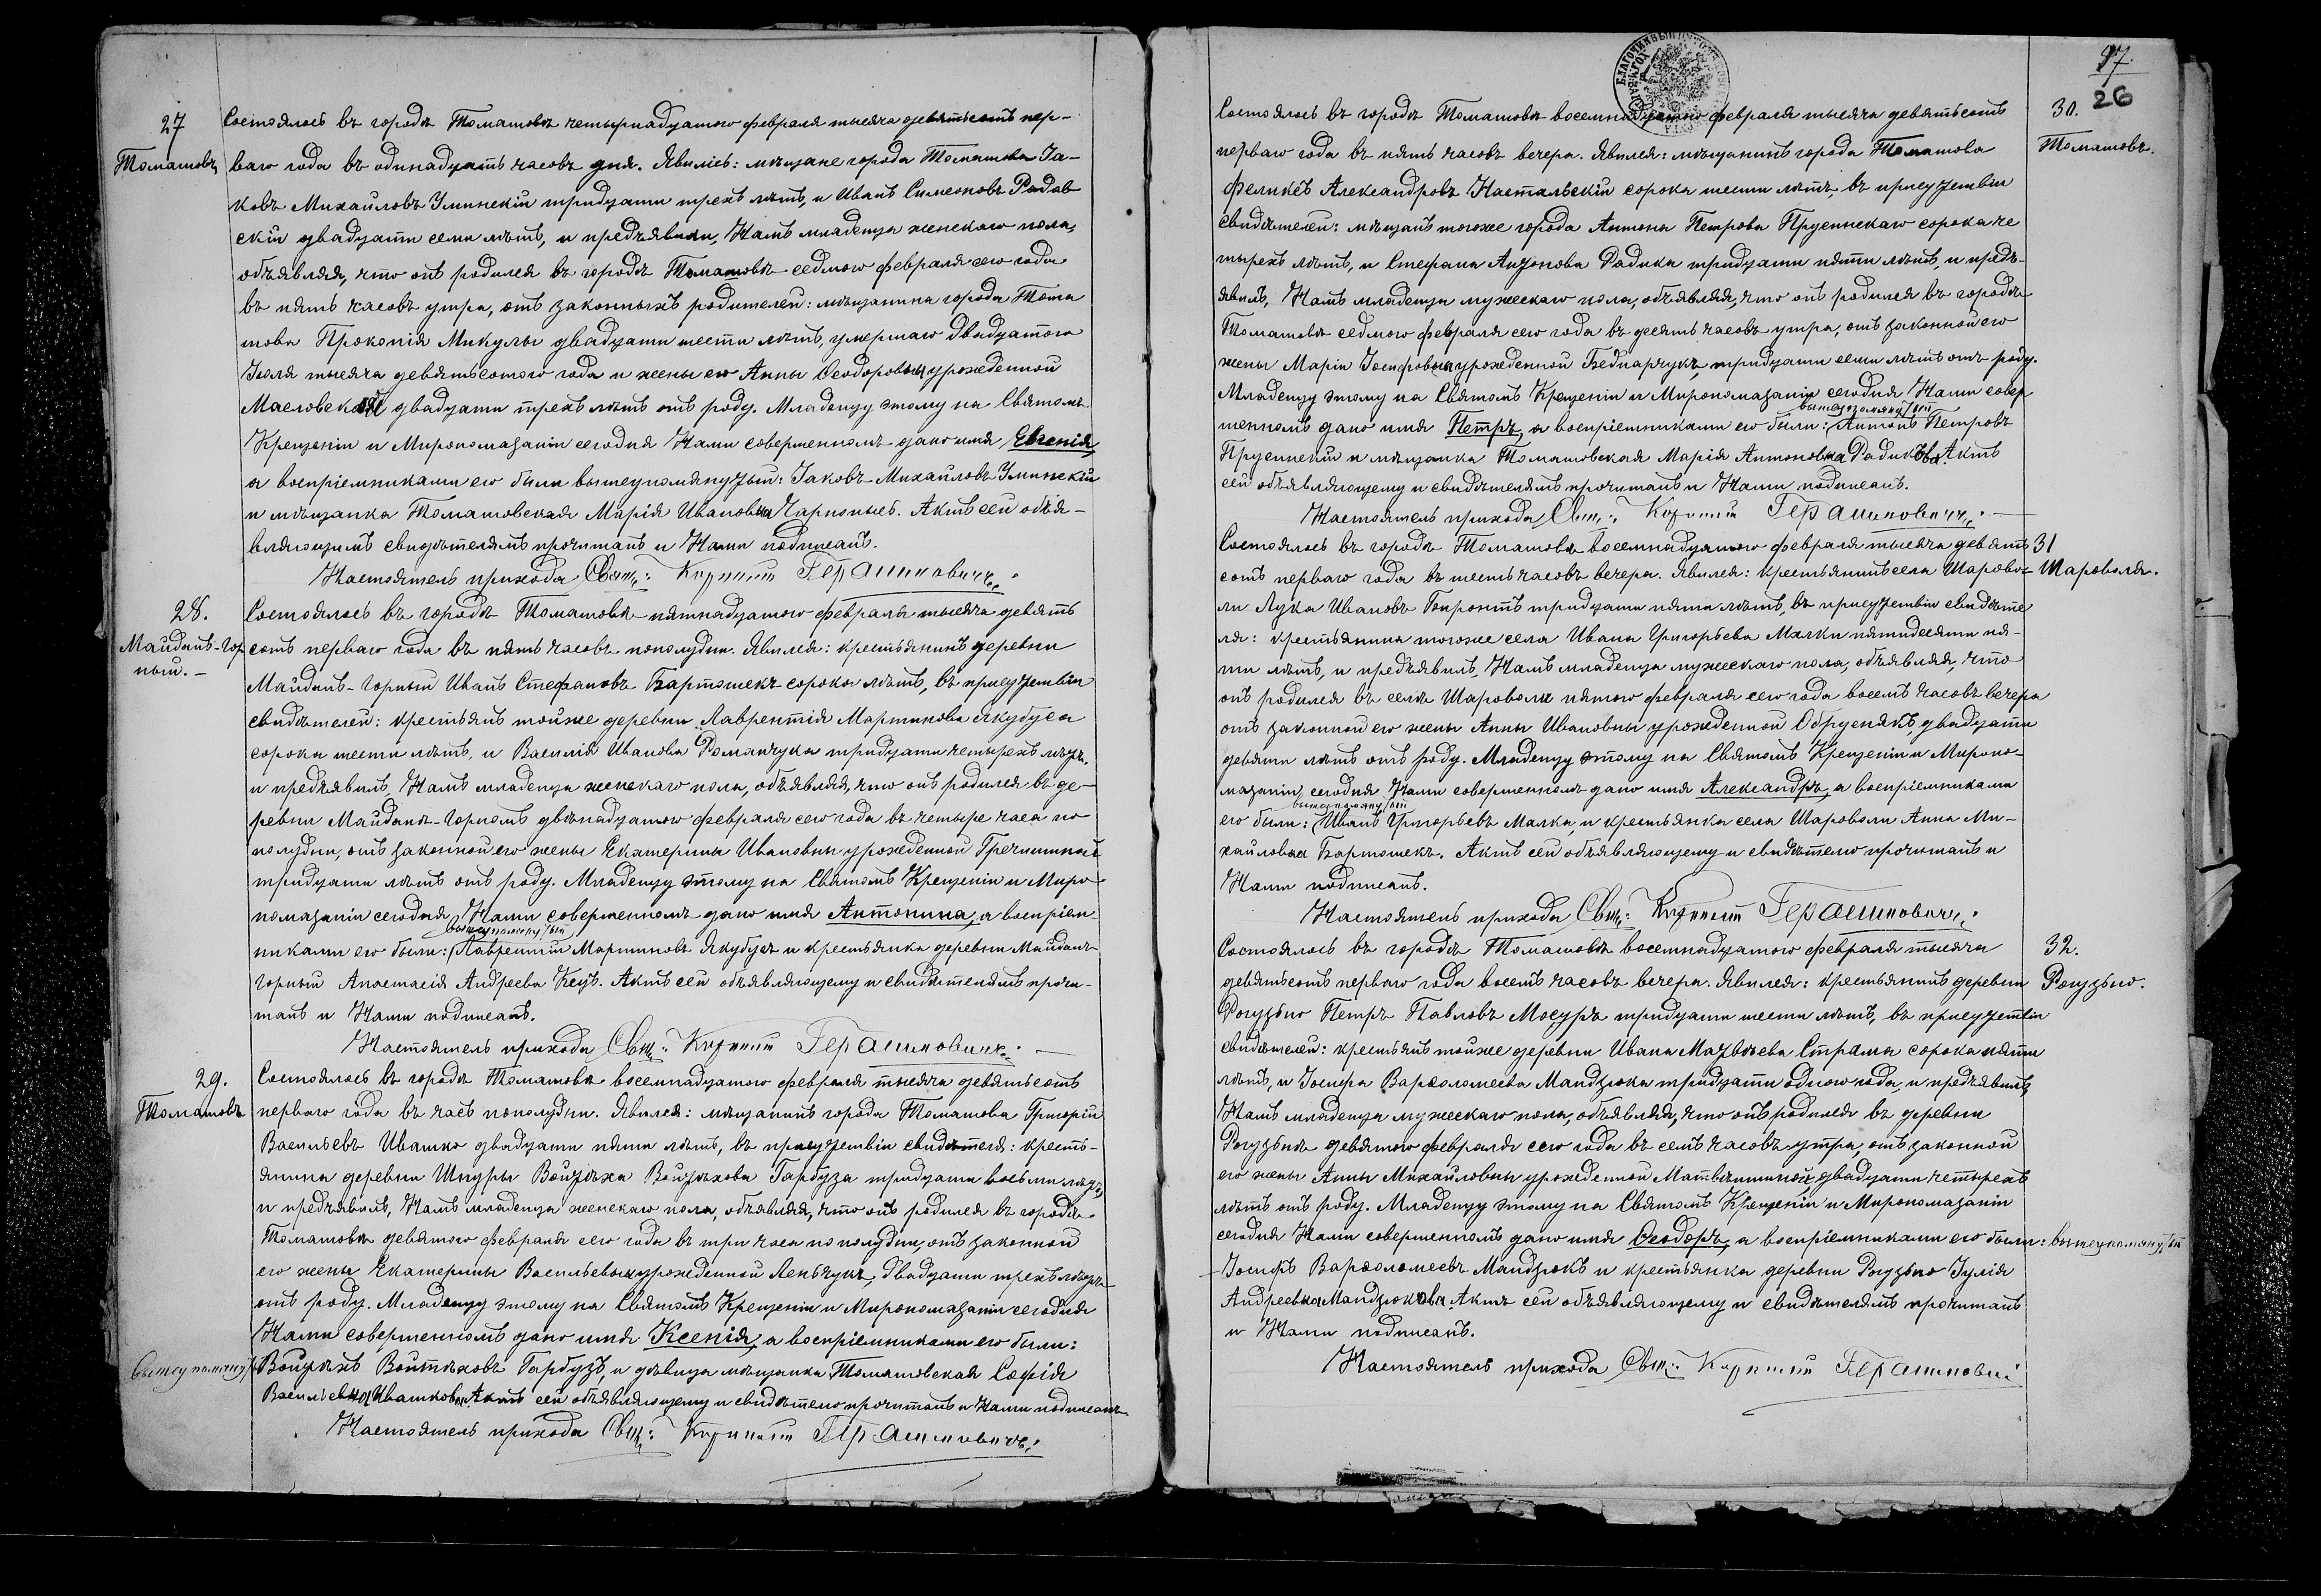 27
Томашовъ
Состоялось въ городѣ Томашовѣ четырнадцатого февраля тысяча девятьсотъ пер-
ваго года въ одинадцать часовъ дня. Явились: мѣщане города Томашова Іа-
ковъ Михайловъ Зминскій тридцати трехъ лѣтъ, и Иванъ Симеоновъ Радов
скій двадцати семи лѣтъ, и предъявили, Намъ младенца женскаго пола,
объявляя, что онъ родился въ городѣ Томашовѣ седмого февраля сего года
въ пять часовъ утра, отъ законныхъ родителей: мѣщанина города Тома
шова Прокопія Микулы двадцати шести лѣтъ, умершаго двадцатого
Іюля тысяча девятьсотого года и жены его Анны Ѳеодоровны урожденной
Масловской двадцати трехъ лѣтъ отъ роду. Младенцу этому на Святомъ
Крещеніи и Миропомазаніи сегодня Нами совершенномъ дано имя Евгенія,
а воспріемниками его были вышеупомянутый: Іаковъ Михайловъ Зминскій
и мѣщанка Томашовская Марія Ивановна Чарнопысь. Актъ сей объя-
вляющимъ свидѣтелямъ прочитанъ и Нами подписанъ.
Настоятель прихода Свящ: Корнилій Герашиновичъ.
28.
Майданъ-Гор
ный.-
Состоялось въ городѣ Томашовѣ пятнадцатого февраля тысяча девять
сотъ перваго года въ пять часовъ пополудни. Явился: крестьянинъ деревни
Майданъ-Горный Иванъ Стефановъ Бартошекъ сорока лѣтъ, въ присутствіи
свидѣтелей: крестьянъ тойже деревни Лаврентія Мартинова Якубуса
сорока шести лѣтъ, и Василія Иванова Романчука тридцати четырехъ лѣтъ,
и предъявилъ, Намъ младенца женскаго пола, объявляя, что онъ родился въ де-
ревни Майданѣ-Горномъ двѣнадцатого февраля сего года въ четыре часа по
полудни, отъ законной его жены Екатерины Ивановны урожденной Гречишиной
тридцати лѣтъ отъ роду. Младенцу этому на Святомъ Крещеніи и Миро-
помазаніи сегодня Нами совершенномъ дано имя Антонина, а воспріем-
вышеупомянутый
никами его были: Лаврентій Мартиновъ Якубусъ и крестьянка деревни Майданъ
Горный Анастасія Андреева Кецъ. Актъ сей объявляющему и свидѣтелямъ прочи-
танъ и Нами подписанъ.
Настоятель прихода Свящ: Корнилій Герашиновичъ.
29.
Томашовъ
Состоялось въ городѣ Томашовѣ восемнадцатого февраля тысяча девятьсотъ
перваго года въ часъ пополудни. Явился: мѣщанинъ города Томашова Григорій
Васильевъ Ивашко двадцати пяти лѣтъ, въ присутствіи свидѣтеля: кресть-
янина деревни Шкуры Войтѣха Войтѣхова Гарбуза тридцати восьми лѣтъ,
и предъявилъ, Намъ младенца женскаго пола, объявляя, что онъ родился въ городѣ
Томашовѣ девятого февраля сего года въ три часа пополудни, отъ законной
его жены Екатерины Васильевны урожденной Леньчукъ, двадцати трехъ лѣтъ
отъ роду. Младенцу этому на Святомъ Крещеніи и Миропомазаніи сегодня
Нами совершенномъ дано имя Ксенія, а воспріемниками его были:
вышеупомянут. Войтѣхъ Войтѣховъ Гарбузъ, и дѣвица мѣщанка Томашовская Софія
Васильевна Ивашкова. Актъ сей объявляющему и свидѣтелю прочитанъ и Нами подписанъ
Настоятель прихода Свящ: Корнилій Герашиновичъ.
97
26
30.
Томашовъ.
Состоялось въ городѣ Томашовѣ восемнадцатого февраля тысяча девятьсотъ
перваго года въ пять часовъ вечера. Явился: мѣщанинъ города Томашова
Феликсъ Александровъ Настальскій сорока шести лѣтъ, въ присутствіи
свидѣтелей: мѣщанъ тогоже города Антона Петрова Прусинскаго сорока че
тырехъ лѣтъ, и Стефана Антонова Радика тридцати пяти лѣтъ, и предъ-
явилъ, Намъ младенца мужескаго пола, объявляя, что онъ родился въ городѣ
Томашовѣ седмого февраля сего года въ десять часовъ утра, отъ законной его
жены Маріи Іосифовны урожденной Беднарчукъ, тридцати семи лѣтъ отъ роду.
Младенцу этому на Святомъ Крещеніи и Миропомазаніи сегодня Нами совер
вышеупомянутый
шенномъ дано имя Петръ, а воспріемниками его были: Антонъ Петровъ
Прусинскій и мѣщанка Томашовская Марія Антоновна Радикова. Актъ
сей объявляющему и свидѣтелямъ прочитанъ и Нами подписанъ.
Настоятель прихода Свящ: Корнилій Герашиновичъ.
31
Шароволя.
Состоялось въ городѣ Томашовѣ восемнадцатого февраля тысяча девять
сотъ перваго года въ шесть часовъ вечера. Явился: крестьянинъ села Шарово-
ли Лука Ивановъ Боиронтъ тридцати пяти лѣтъ, въ присутствіи свидѣте
ля: крестьянина тогоже села Ивана Григорьева Малки пятидесяти пя-
ти лѣтъ, и предъявилъ, Намъ младенца мужескаго пола, объявляя, что
онъ родился въ селѣ Шароволи пятого февраля сего года восемь часовъ вечера
отъ законной его жены Анны Ивановны урожденной Обрусиякъ, двадцати
девяти лѣтъ отъ роду. Младенцу этому на Святомъ Крещеніи и Миропо-
мазаніи сегодня Нами совершенномъ дано имя Александръ, а воспріемниками
вышеупомянутый
его были: Иванъ Григорьевъ Малка, и крестьянка села Шароволи Анна Ми-
хайловна Бартошекъ. Актъ сей объявляющему и свидѣтелю прочитанъ и
Нами подписанъ.
Настоятель прихода Свящ: Корнилій Герашиновичъ.
32.
Рогузьно.
Состоялось въ городѣ Томашовѣ восемнадцатого февраля тысяча
девятьсотъ перваго года восемь часовъ вечера. Явился: крестьянинъ деревни
Рогузьно Петръ Павловъ Мосуръ тридцати шести лѣтъ, въ присутствіи
свидѣтелей: крестьянъ тойже деревни Ивана Матвѣева Стряма сорока пяти
лѣтъ, и Іосифа Варѳоломеева Мандзюка тридцати одного года, и предъявилъ,
Намъ младенца мужескаго пола, объявляя, что онъ родился въ деревни
Рогузьнѣ девятого февраля сего года въ семь часовъ утра, отъ законной
его жены Анны Михайловны урожденной Матвѣишиной, двадцати четырехъ
лѣтъ отъ роду. Младенцу этому на Святомъ Крещеніи и Миропомазаніи
сегодня Нами совершенномъ дано имя Ѳеодоръ, а воспріемниками его были: вышеупомянутый
Іосифъ Варѳоломеевъ Мандзюкъ и крестьянка деревни Рогузьно Іулія
Андреевна Мандзюкова. Актъ сей объявляющему и свидѣтелямъ прочитанъ
и Нами подписанъ.
Настоятель прихода Свящ: Корнилій Герашиновичъ